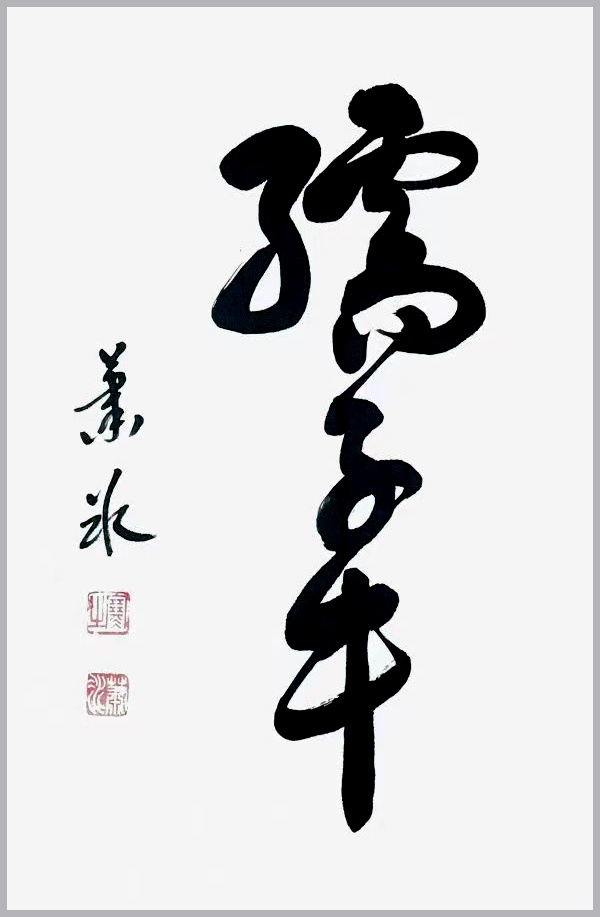 孺子牛
萧冰